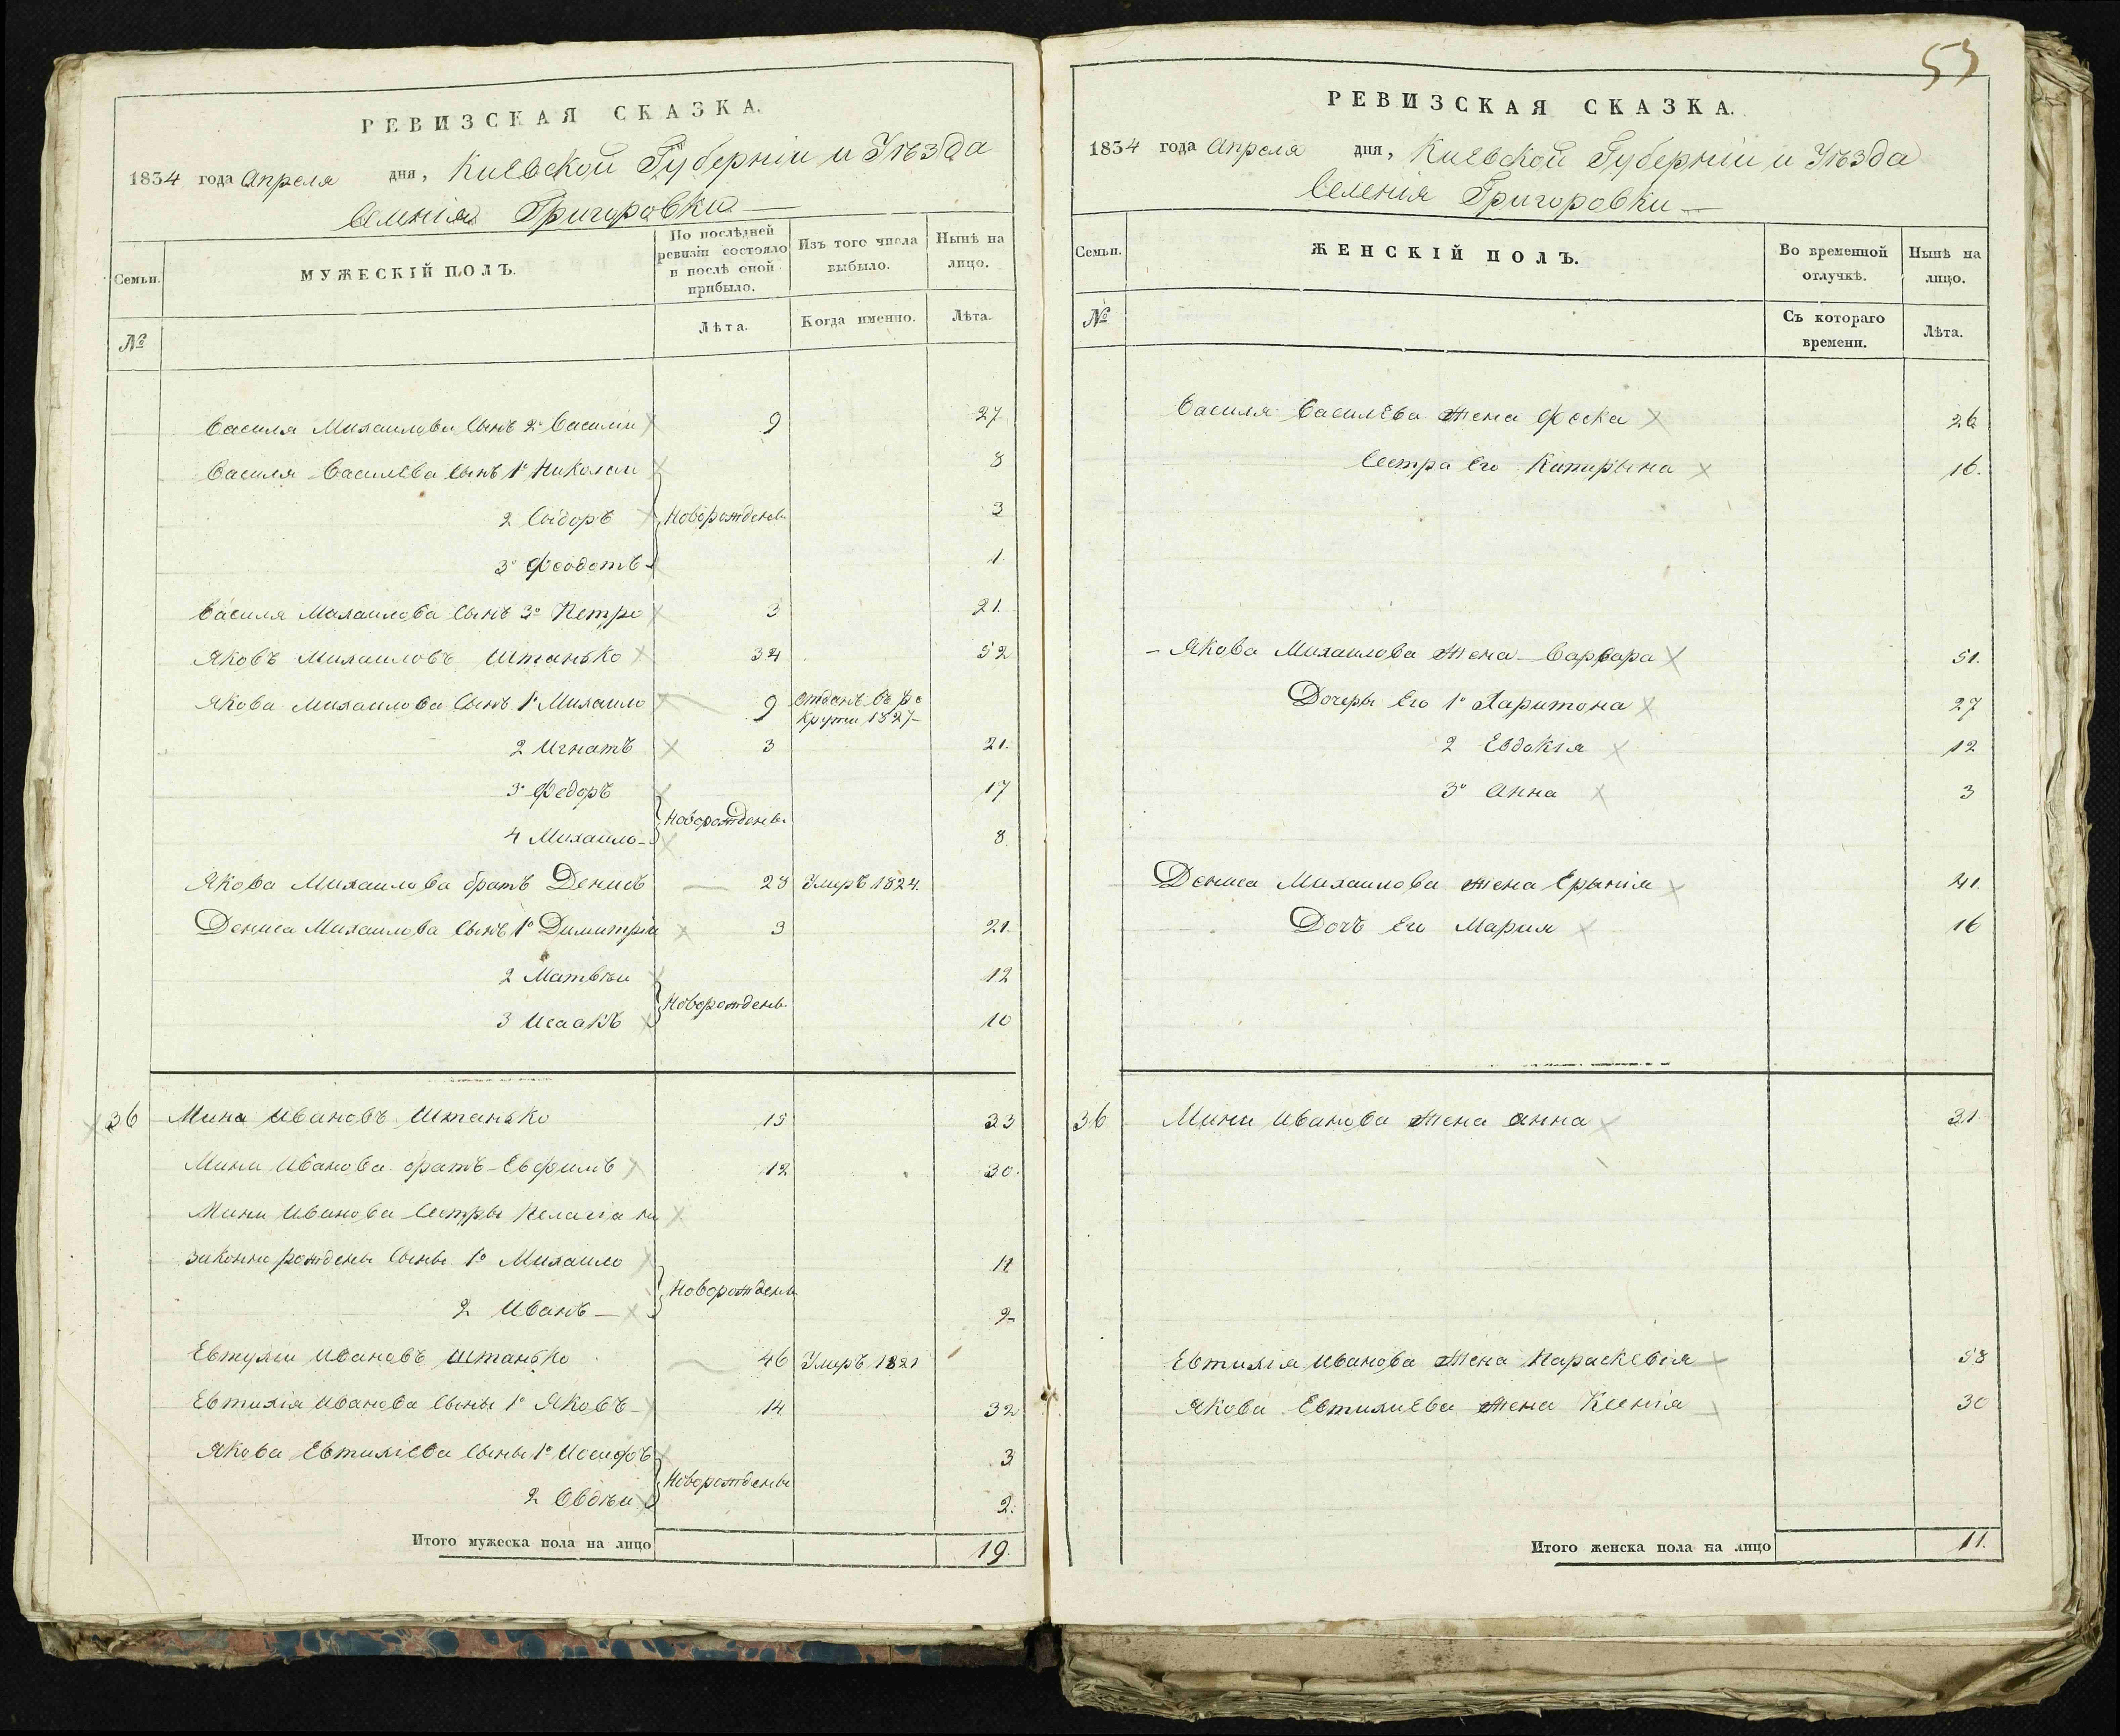 РЕВИЗСКАЯ СКАЗКА.
1834 года Апреля дня, Киевской Губерніи и Уѣзда
Селенія Григоровки
Семьи.
МУЖЕСКІЙ ПОЛЪ.
По послѣдней ревизіи состояло и послѣ оной прибыло.
Изъ того числа выбыло.
Нынѣ на лицо.
№
Лѣта.
Когда именно.
Лѣта.
Василя Михаилова Сынъ 2й Василіи 9 27
Василя Василева Сынъ 1й Николаи 8
2 Сидоръ Новорождены 3
3й Феодотъ 1
Василя Михаилова Сынъ 3й Петро 3 21.
Яковъ Михаиловъ Штанько 34 52
Якова Михаилова Сынъ 1й Михаило 9 Отданъ въ ре
круты 1827
2 Игнатъ 3 21.
3й Федоръ 17
Новорождены
4 Михаило 8.
Якова Михаилова братъ Денисъ 28 Умеръ 1824.
Дениса Михаилова Сынъ 1й Димитріи 3 21.
2 Матвѣи 12
Новорождены
3 Исаакъ 10
36 Мина Ивановъ Штанько 15 33
Мины Иванова братъ Евфимъ 12 30.
Мини Иванова Сестры Пелагіа не
законно рождены Сыны 1й Михаило 11
Новорождены
2 Иванъ 2
Евтухіи Ивановъ Штанько 46 Умеръ 1821
Евтихія Иванова Сыны 1й Яковъ 14 32
Якова Евтихіева Сыны 1й Иосифъ 3
Новорождены
2 Овдѣи 2.
Итого мужеска пола на лицо 19.
53
РЕВИЗСКАЯ СКАЗКА.
1834 года Апреля дня, Киевской Губерніи и Уѣзда
Селенія Григоровки
Семьи.
ЖЕНСКІЙ ПОЛЪ.
Во временной отлучкѣ.
Нынѣ на лицо.
№
Съ котораго времени.
Лѣта.
Василя Василева жена Феска 26
Сестра Его Катирына 16.
Якова Михаилова жена Варвара 51.
Дочеры Его 1й Харитона 27
2 Евдокія 12
3й Анна 3
Дениса Михаилова жена Ерынія 41.
Дочъ Его Мария 16
36 Мини Иванова жена Анна 31
Евтихія Иванова жена Параскевія 58
Якова Евтихиева жена Ксенія 30
Итого женска пола на лицо 11.